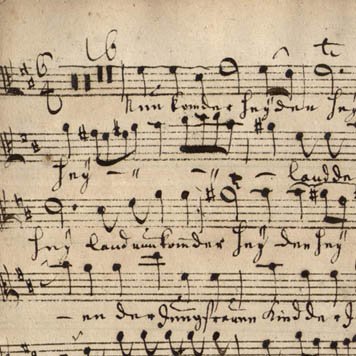 16 t.
Nun kom der heyden hey
hey - " - " - landde
hey land nun kom der hey den hey
- en der Jungfrauen Kind der J